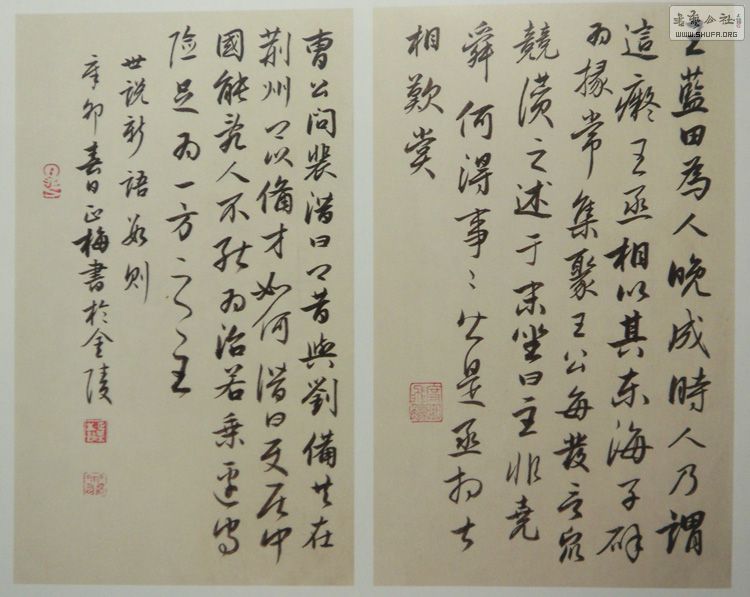 王藍田為人晚成時人乃謂
這癡王丞相以其東海子辟
为掾常集聚王公每發言眾
競讚之述于末坐曰主非堯
舜何得事〻皆是丞相
相歎賞
曹公問裴潛曰卿昔與劉備共在
荊州卿以備才如何潛曰使居中
國能亂人不能为治若乘邊守
險足为一方之主
世說新語数則
辛卯春日正梅書於金陵
公社
WWW.SHUFA.ORG